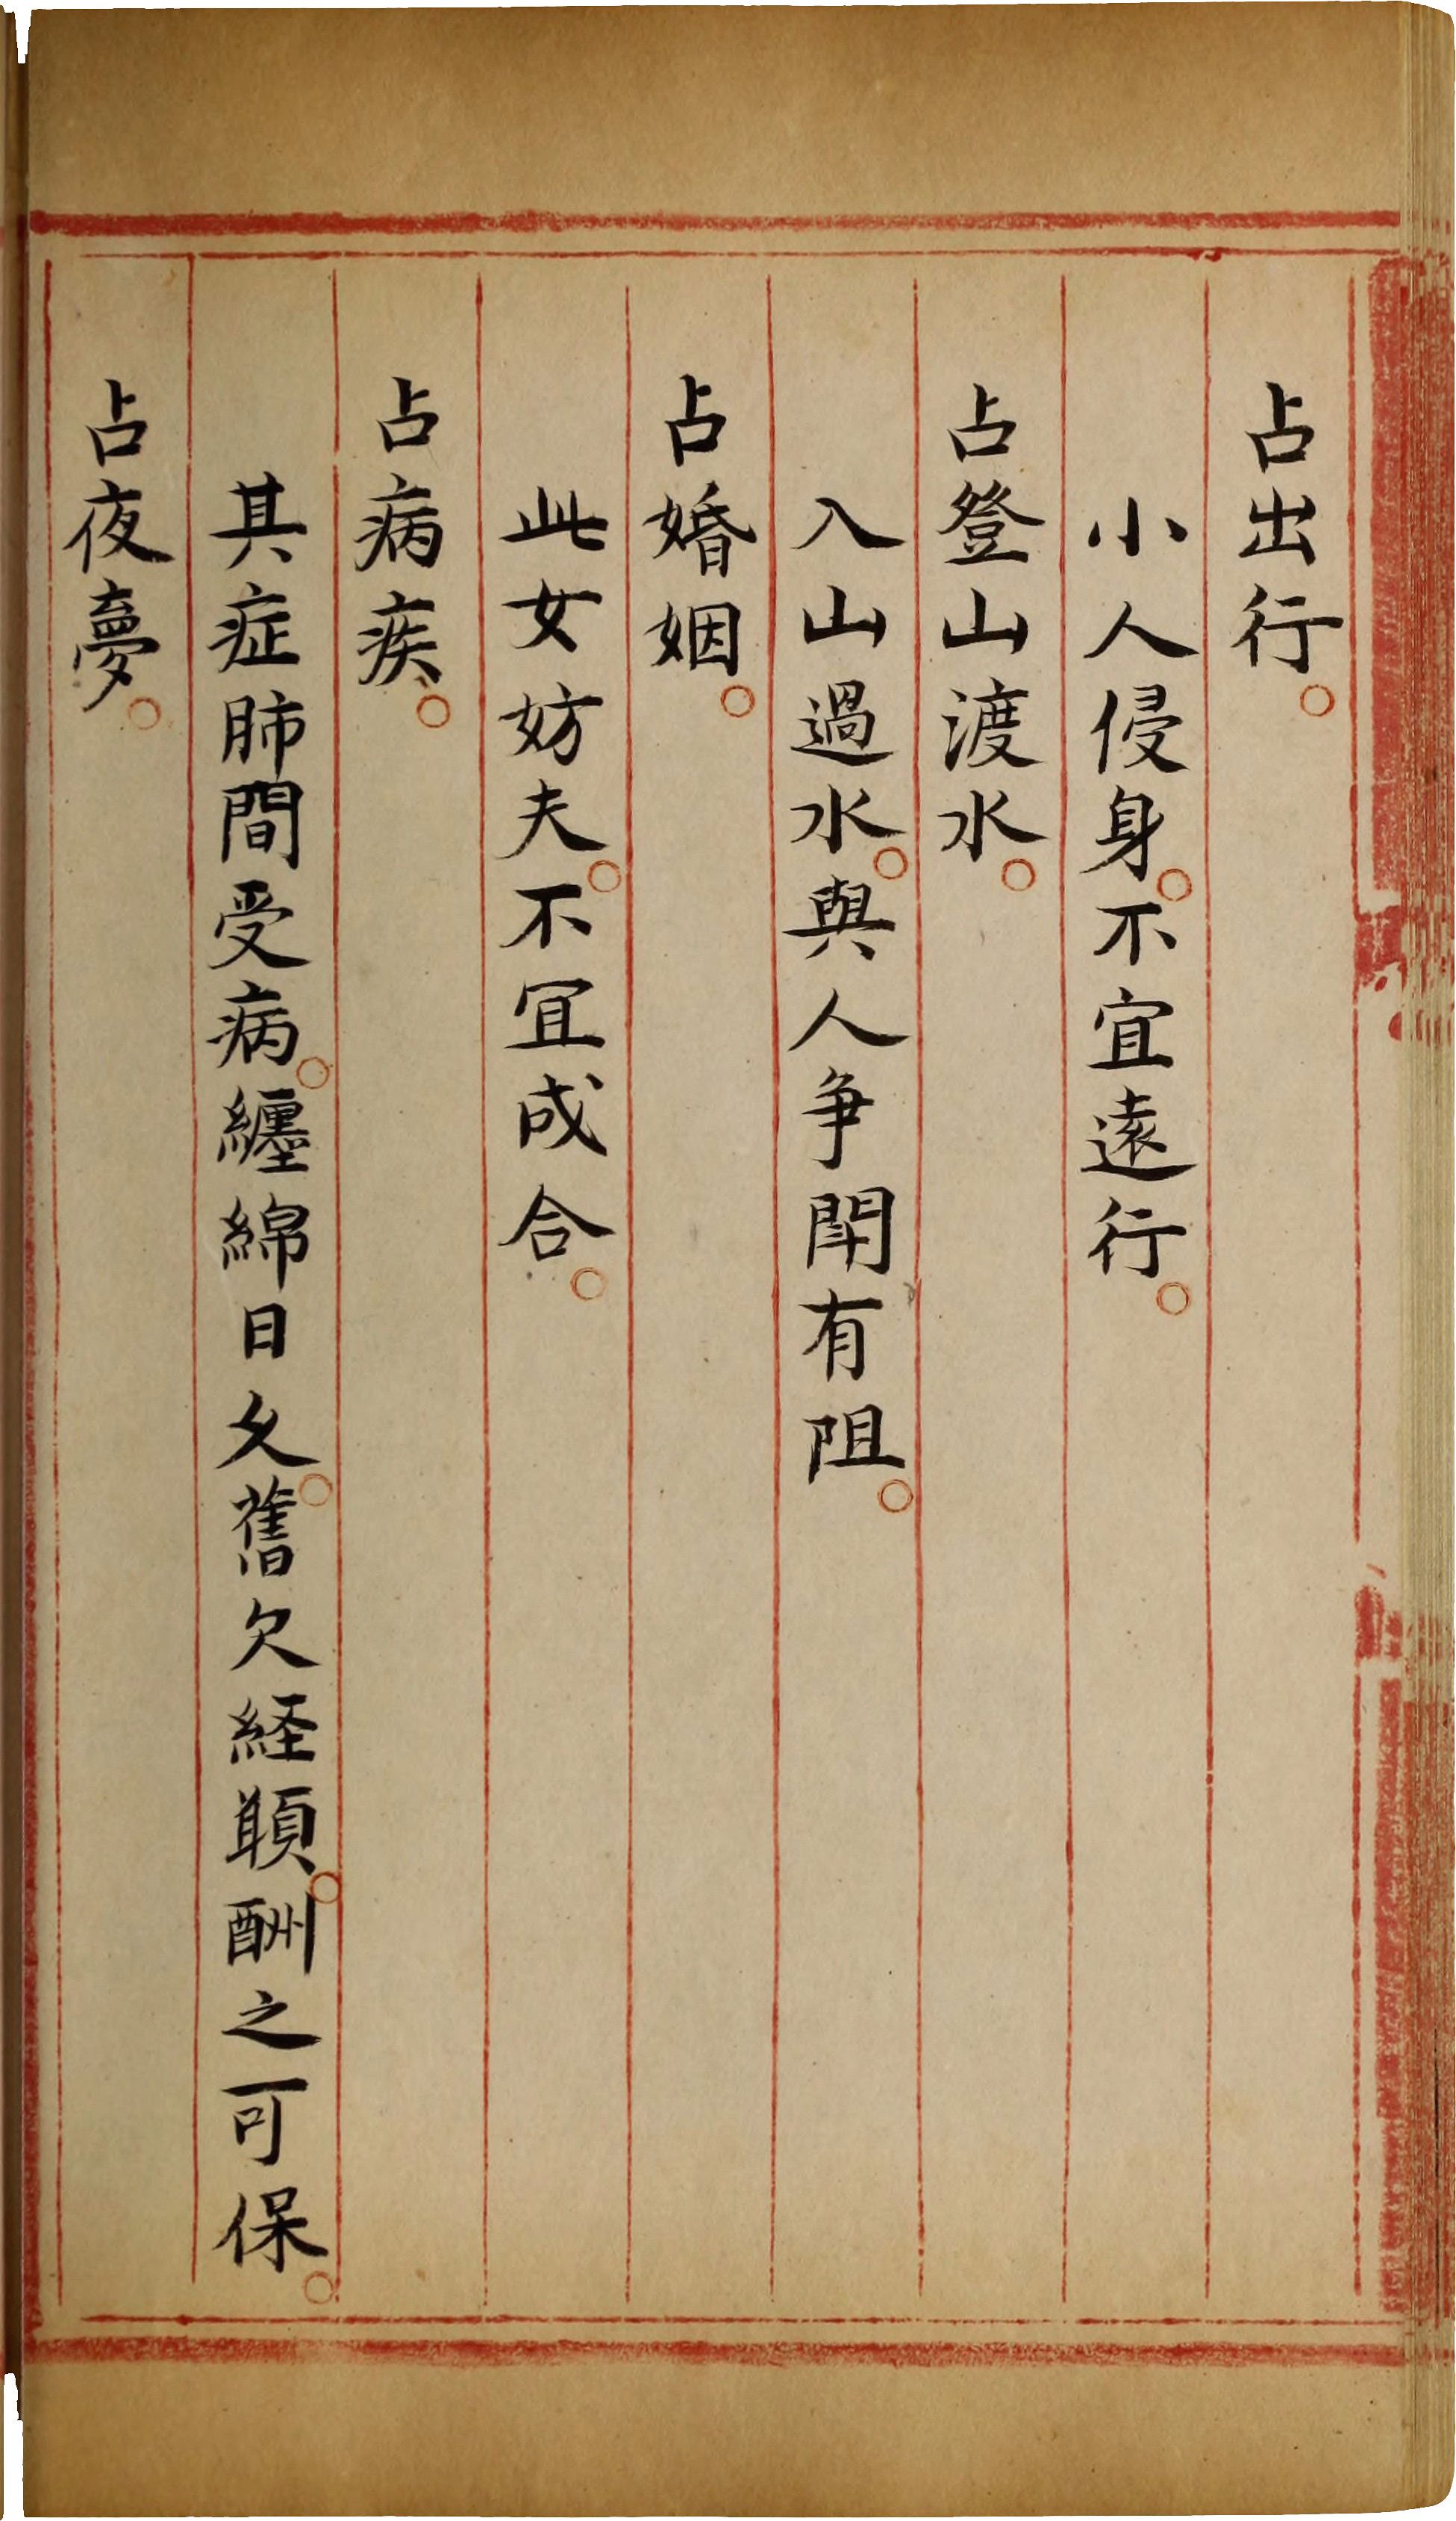 占出行。
小人侵身。不宜遠行。
占登山渡水。
入山過水。與人争閗有阻。
占婚姻。
此女妨夫。不冝成合。
占病疾。
其症肺間受病。纏綿日久。舊欠経願。酬之可保。
占夜夢。